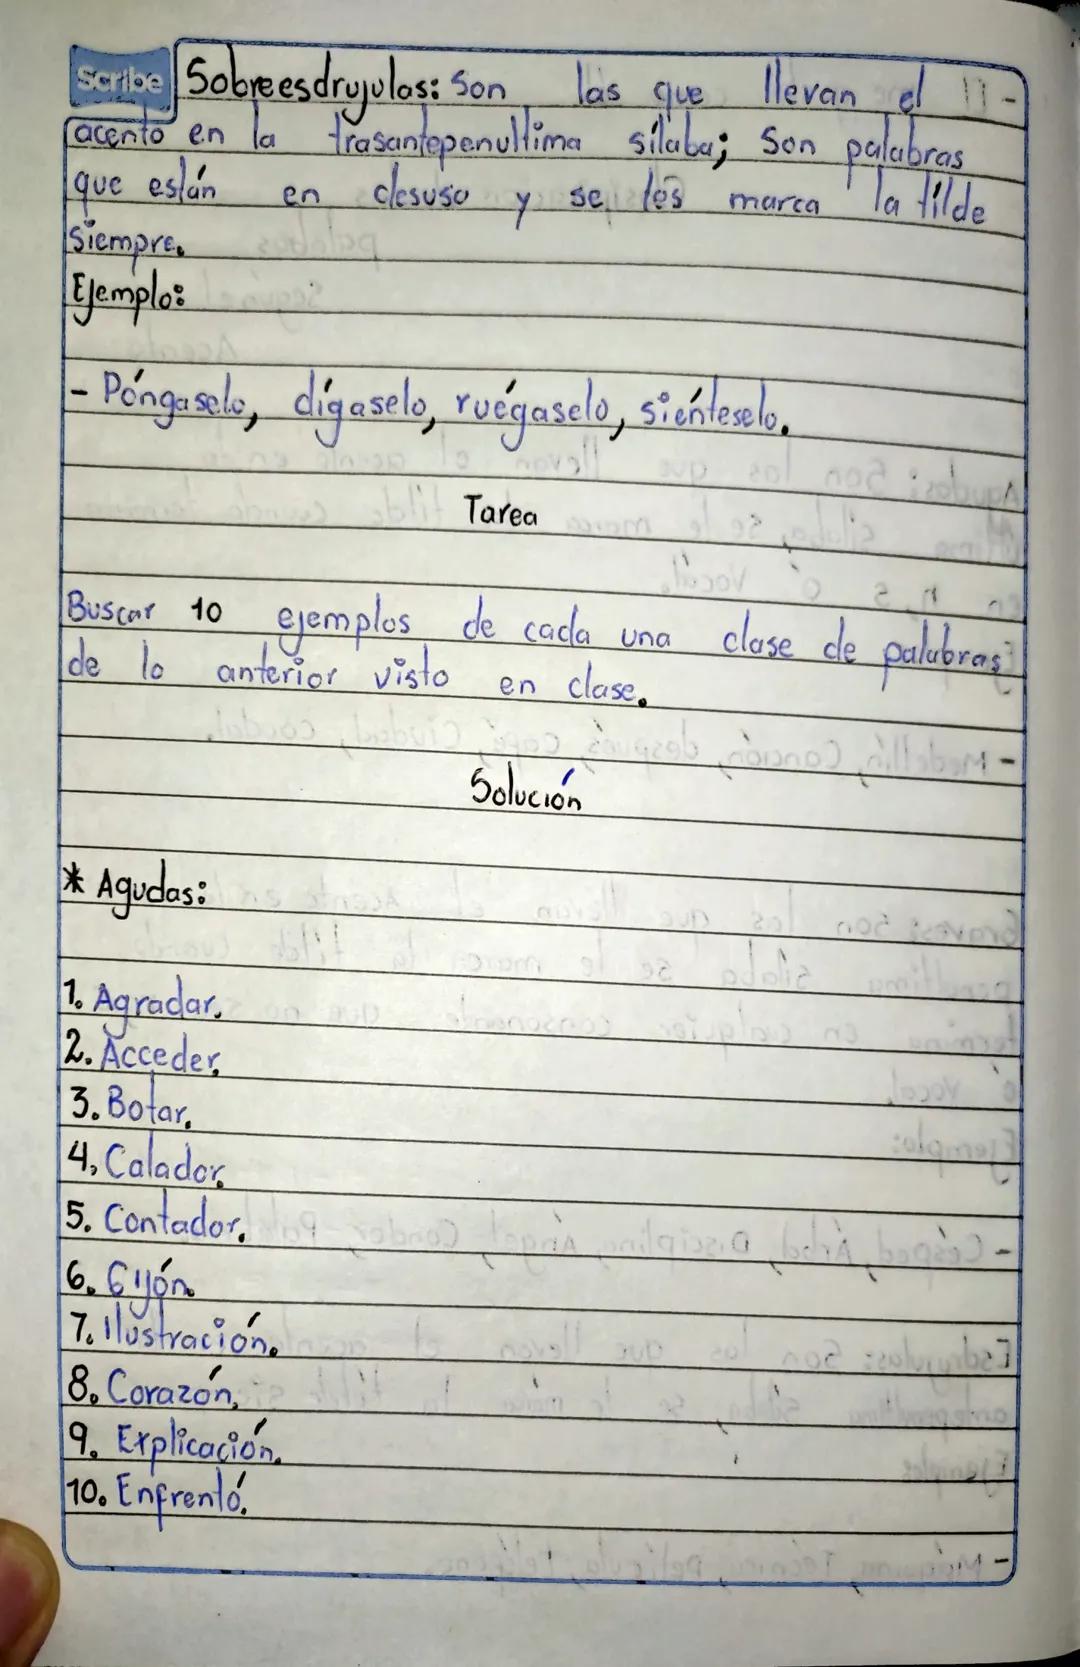 Scribe
Sobreesdrujulas: Son las que llevan el
acento en la trasantepenultima sílaba; Son palabras
que están en desuso y se les marca la tilde
Siempre.
Ejemplo:
- Póngaselo, dígaselo, ruégaselo, siénteselo.
Tarea
Buscar 10 ejemplos de cada una clase de palabras
de lo anterior visto en clase.
Solución
* Agudas:
1. Agradar.
2. Acceder.
3. Botar.
4. Calador.
5. Contador.
6. Gijón.
7. Ilustración.
8. Corazón.
9. Explicación.
10. Enfrentó.